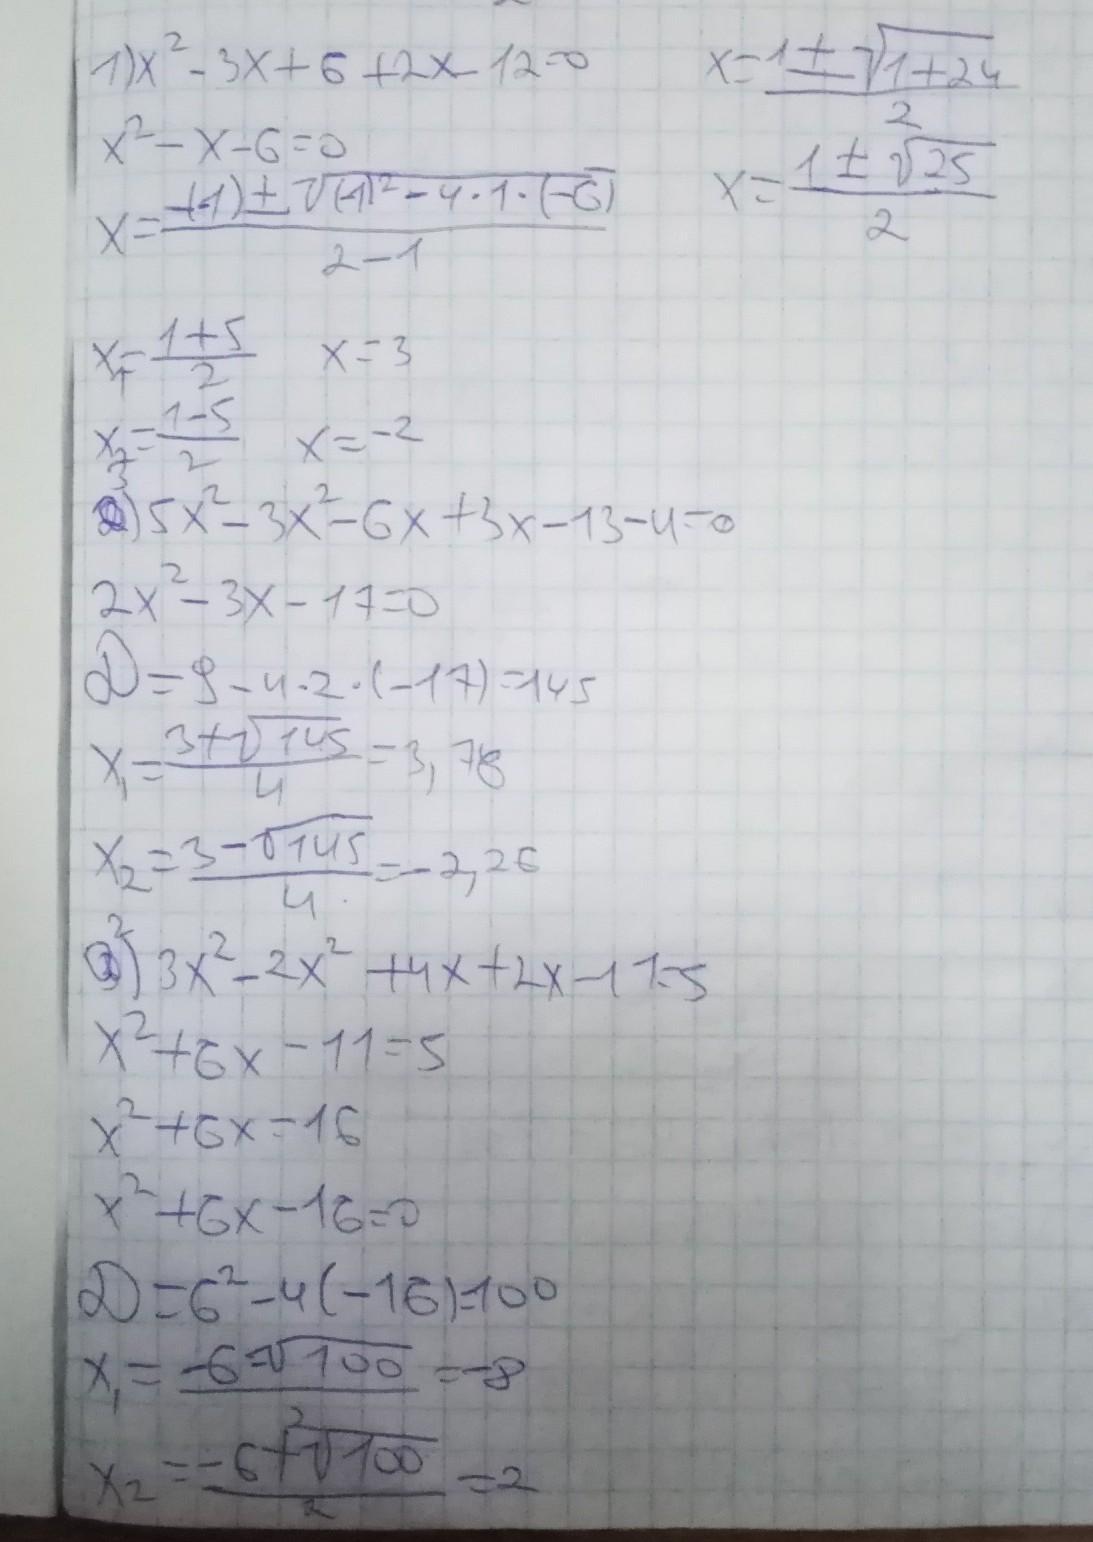 1) x² - 3x + 6 + 2x - 12 = 0
x² - x - 6 = 0
x = (-(-1) ± √((-1)² - 4·1·(-6))) / (2-1)
x = (1 ± √(1+24)) / 2
x = (1 ± √25) / 2
x₁ = (1+5)/2 x = 3
x₂ = (1-5)/2 x = -2
3) 5x² - 3x² - 6x + 3x - 13 - 4 = 0
2x² - 3x - 17 = 0
D = 9 - 4·2·(-17) = 145
x₁ = (3+√145)/4 = 3,78
x₂ = (3-√145)/4 = -2,26
2) 3x² - 2x² + 4x + 2x - 11 = 5
x² + 6x - 11 = 5
x² + 6x = 16
x² + 6x - 16 = 0
D = 6² - 4(-16) = 100
x₁ = (-6-√100)/2 = -8
x₂ = (-6+√100)/2 = 2